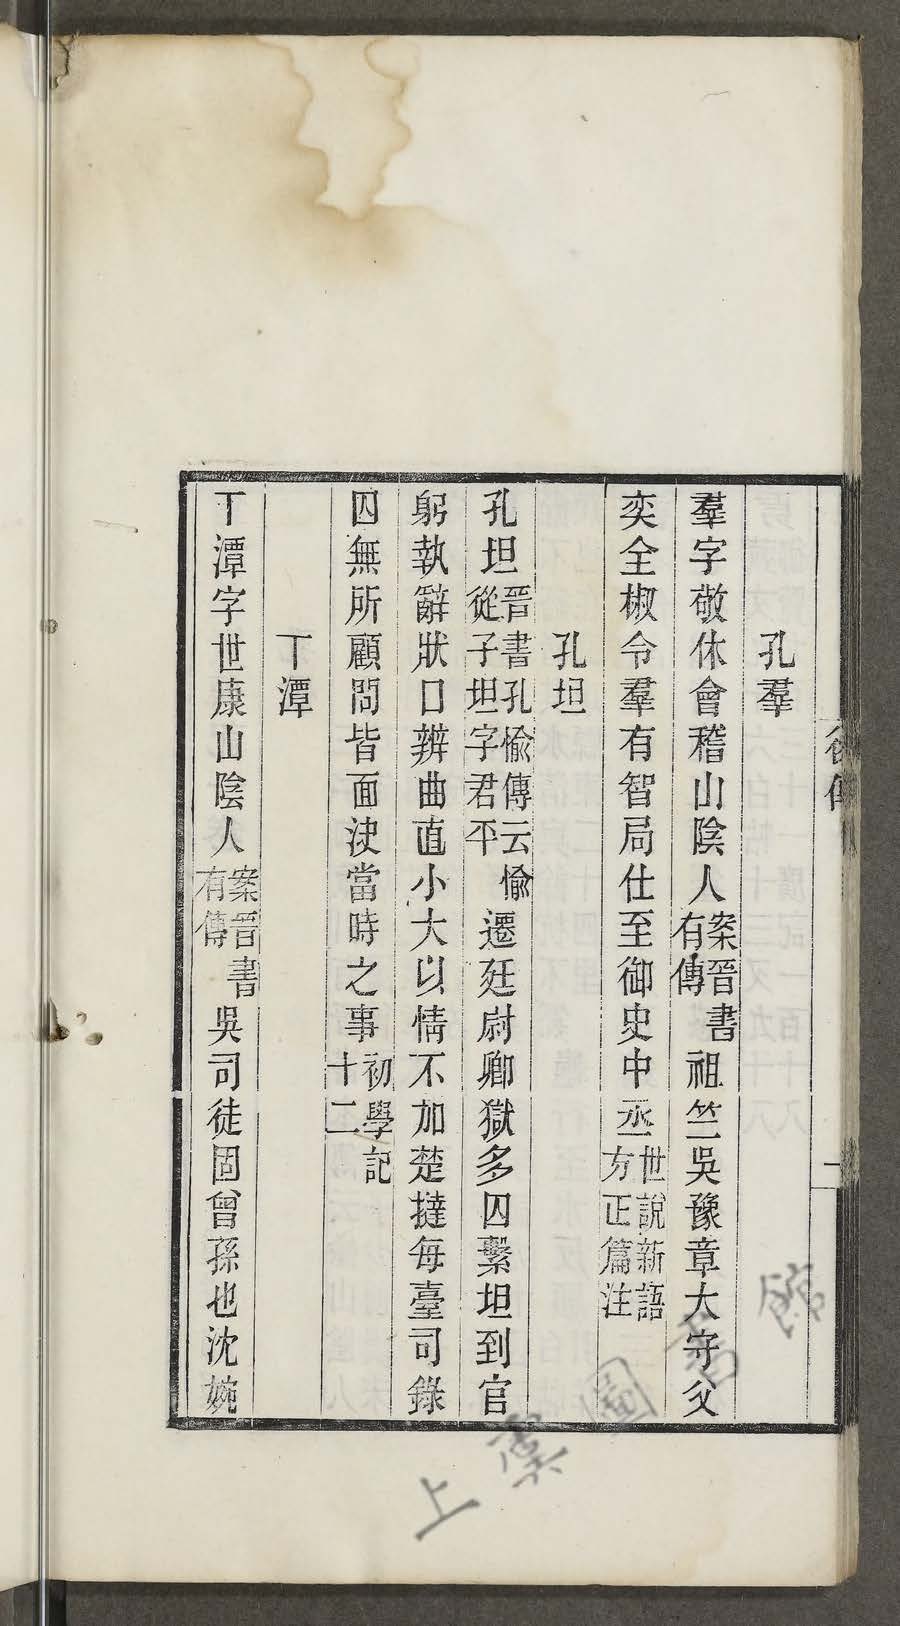 孔羣
羣字敬休會稽山陰人案晉書有傳祖竺吳豫章大守父
奕全椒令羣有智局仕至御史中丞世說新語方正篇注
孔坦
孔坦晉書孔愉傳云愉從子坦字君平遷廷尉卿獄多囚繫坦到官
躬執辭狀口辨曲直小大以情不加楚撻每臺司錄
囚無所顧問皆面決當時之事初學記十二
丁潭
丁潭字世康山陰人案晉書有傳吳司徒固曾孫也沈婉
上虞圖書館